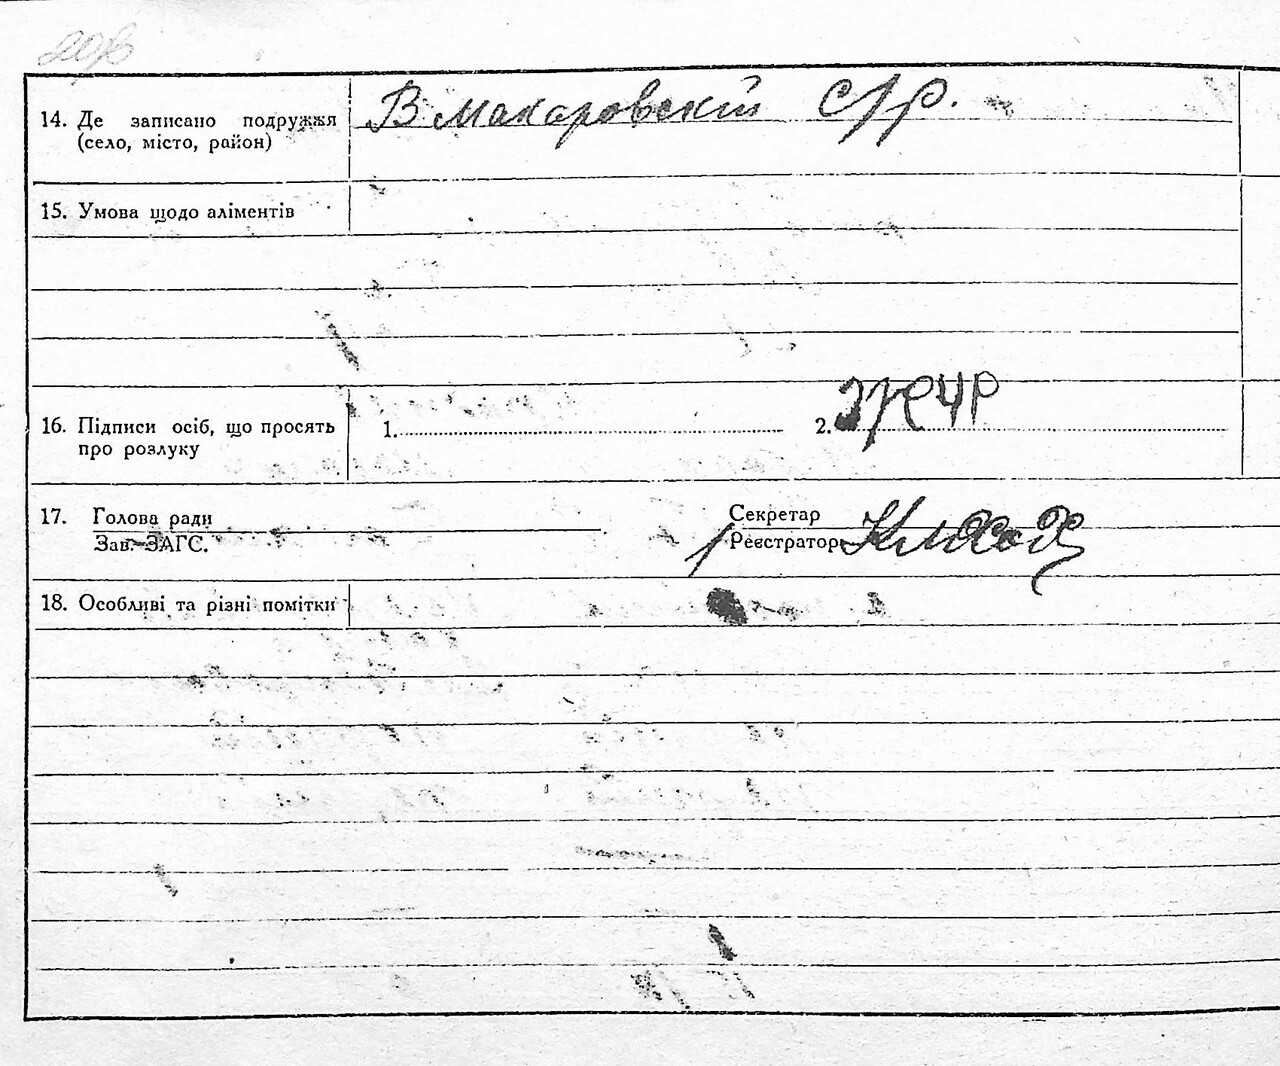 14. Де записано подружжя
(село, місто, район)
В Макаровскій С/р.
15. Умова щодо аліментів
16. Підписи осіб, що просять
про розлуку
1.
2.
17. Голова ради
Зав. ЗАГС.
Секретар
Реєстратор
18. Особливі та різні помітки